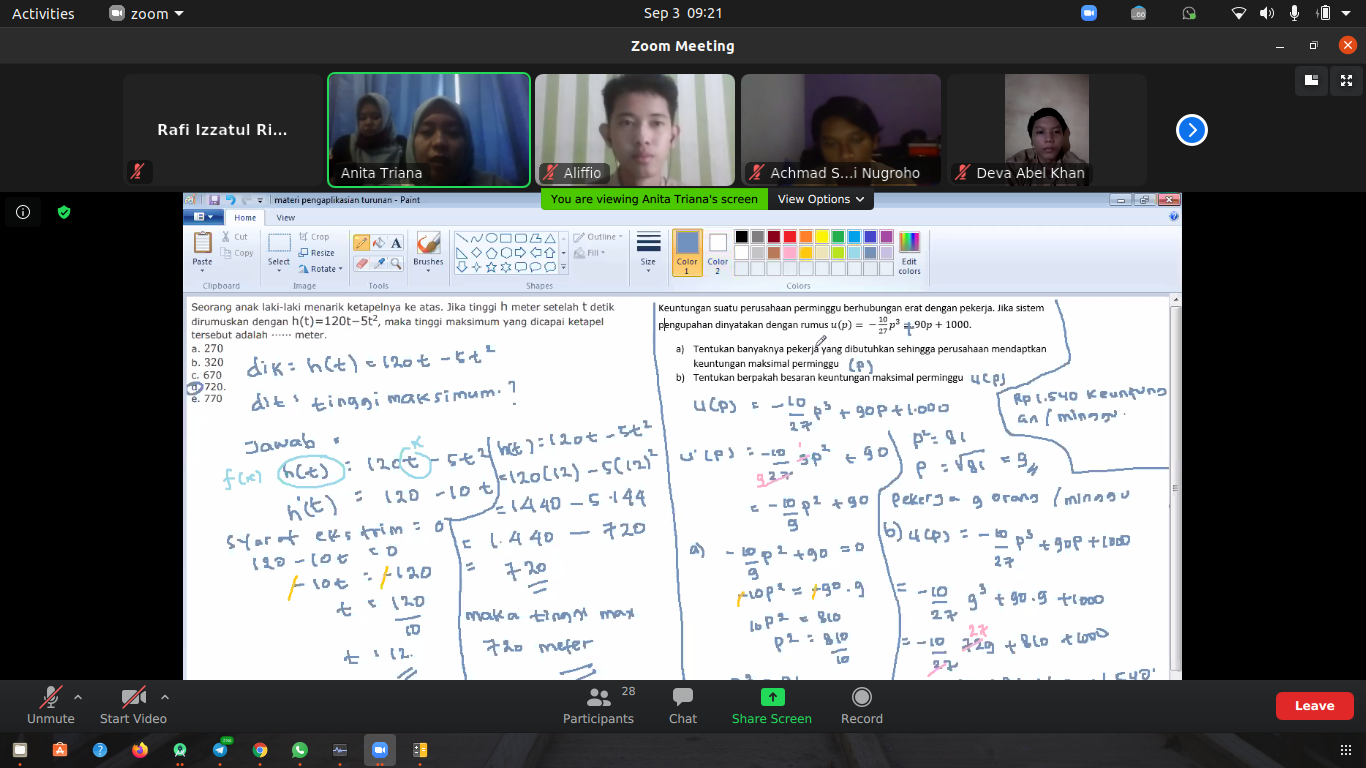 Activities
zoom
Sep 3 09:21
Zoom Meeting
Rafi Izzatul Ri...
Anita Triana
Aliffio
Achmad S...i Nugroho
Deva Abel Khan
You are viewing Anita Triana's screen
View Options
materi pengaplikasian turunan - Paint
Home
View
Paste
Cut
Copy
Clipboard
Select
Crop
Resize
Rotate
Image
A
Tools
Brushes
Outline
Fill
Shapes
Size
Color 1
Color 2
Edit colors
Colors
Seorang anak laki-laki menarik ketapelnya ke atas. Jika tinggi h meter setelah t detik
dirumuskan dengan h(t)=120t−5t², maka tinggi maksimum yang dicapai ketapel
tersebut adalah ······ meter.
a. 270
b. 320
c. 670
d. 720.
e. 770
dik = h(t) = 120t - 5t²
dit = tinggi maksimum. ?
Jawab =
x
f(x) h(t) = 120t - 5t²
h'(t) = 120 - 10t
syarat ekstrim = 0
120 - 10t = 0
-10t = -120
t = 120/10
t = 12.
h(t) = 120t - 5t²
= 120(12) - 5(12)²
= 1.440 - 5.144
= 1.440 - 720
= 720
maka tinggi max
720 meter
Keuntungan suatu perusahaan perminggu berhubungan erat dengan pekerja. Jika sistem
pengupahan dinyatakan dengan rumus u(p) = −10/27 p³ + 90p + 1000.
a) Tentukan banyaknya pekerja yang dibutuhkan sehingga perusahaan mendaptkan
keuntungan maksimal perminggu (p)
b) Tentukan berpakah besaran keuntungan maksimal perminggu u(p)
u(p) = -10/27 p³ + 90p + 1.000
u'(p) = -10/27 3p² + 90
9 1
= -10/9 p² + 90
a) -10/9 p² + 90 = 0
-10p² = -90.9
10p² = 810
p² = 810/10
Rp 1.540 Keuntung
an / minggu.
p² = 81
p = √81 = 9
pekerja 9 orang / minggu
b) u(p) = -10/27 p³ + 90p + 1000
= -10/27 9³ + 90.9 + 1000
27
= -10/27 729 + 810 + 1000
Unmute
Start Video
Participants
28
Chat
Share Screen
Record
Leave